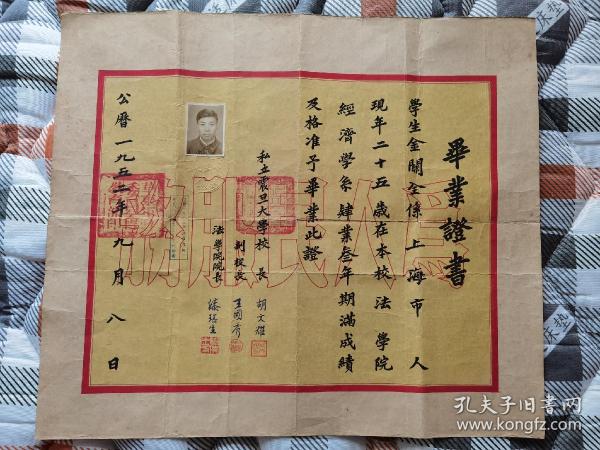 畢業證書
學生金關全係上海市人
現年二十五歲在本校法學院
經濟學系肄業叁年期滿成績
及格准予畢業此證
私立震旦大學校長 胡文耀
副校長 王國秀
法學院院長 漆琪生
公曆一九五二年九月八日
為人民服務
孔夫子旧书网
www.kongfz.com